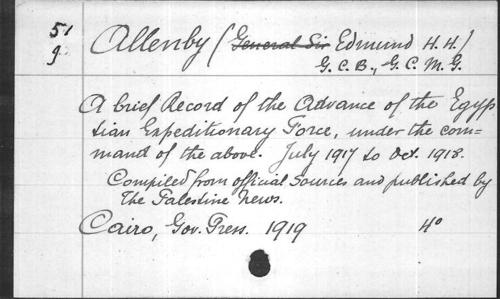 51
g.
Allenby (General Sir Edmund H. H.)
G. C. B., G. C. M. G.
A brief Record of the Advance of the Egyp
tian Expeditionary Force, under the com=
mand of the above. July 1917 to Oct. 1918.
Compiled from official Sources and published by
The Palestine News.
Cairo, Gov. Press. 1919 4°